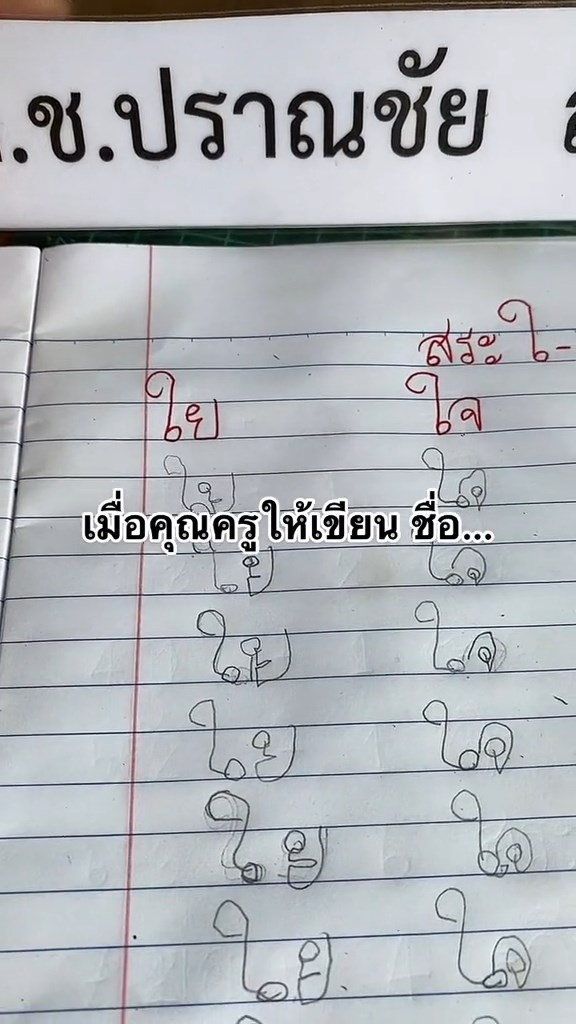 .ช.ปราณชัย
สระ ใ-
ใย ใจ
ใย ใจ
เมื่อคุณครูให้เขียน ชื่อ...
ใย ใจ
ใย ใจ
ใย ใจ
ใย ใจ
ใย ใจ